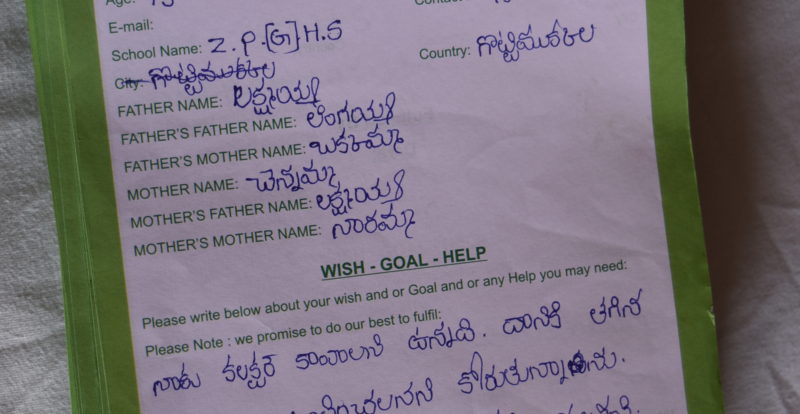 Age: 15
E-mail:
School Name: Z.P.[G] H.S
City: గొట్టిముక్కల Country: గొట్టిముక్కల
FATHER NAME: లక్ష్మయ్య
FATHER'S FATHER NAME: లింగయ్య
FATHER'S MOTHER NAME:
MOTHER NAME: చెన్నమ్మ
MOTHER'S FATHER NAME: లక్ష్మయ్య
MOTHER'S MOTHER NAME: నారమ్మ
WISH - GOAL - HELP
Please write below about your wish and or Goal and or any Help you may need:
Please Note : we promise to do our best to fulfil:
నాకు కలక్టర్ కావాలని ఉన్నది. దానికి తగిన
కోరుతున్నాను.